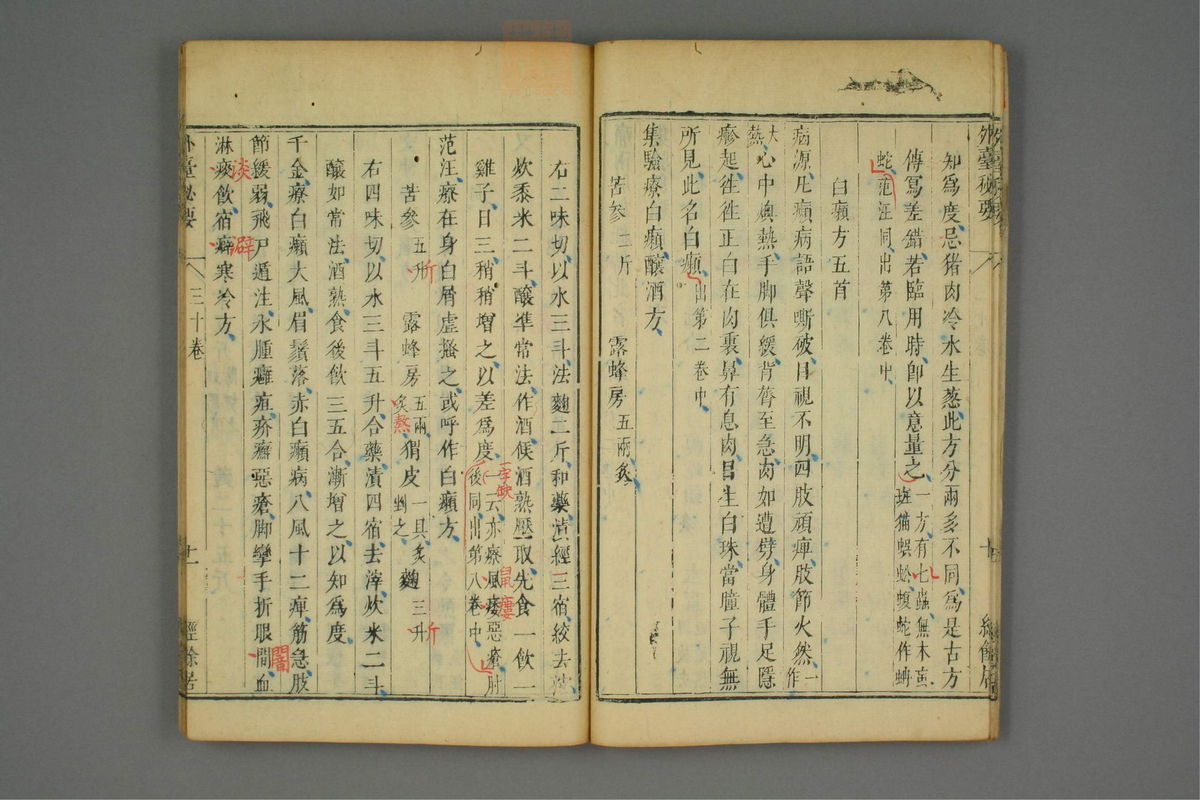 知爲度忌猪肉冷水生葱此方分兩多不同爲是古方
傳寫差錯若臨用時卽以意量之一方有七蟲無木䖟
斑猫蜈蚣蝮蛇作蝟
蛇范汪同出第八卷中
白癩方五首
病源凡癩病語聲嘶破目視不明四肢頑痺肢節火然一作
大熱心中燠熱手脚俱緩背膂至急肉如遭劈身體手足隱
疹起徃徃正白在肉裏鼻有息肉目生白珠當瞳子視無
所見此名白癩出第二卷中
集驗療白癩釀酒方
苦參二斤 露蜂房五兩炙
右二味切以水三斗法麴二斤和藥漬經三宿絞去
炊黍米二斗釀準常法作酒候酒熟壓取先食一飲一
雞子日三稍稍增之以差爲度一云亦療風瘻惡瘡肘
後同出第八卷中
一字缺
鼠瘻
范汪療在身白屑虛搔之或呼作白癩方
苦參五升 露蜂房五兩炙 猬皮一具炙剉之 麴三升
斤
熬
斤
右四味切以水三斗五升合藥漬四宿去滓炊米二斗
釀如常法酒熟食後飲三五合漸增之以知爲度
千金療白癩大風眉鬚落赤白癩病八風十二痺筋急肢
節緩弱飛尸遁注水腫癰疽疥癬惡瘡脚攣手折眼闇血
闇
淋痰飲宿癖寒冷方
淡
澼
外臺秘要
三十卷
十一
經餘居